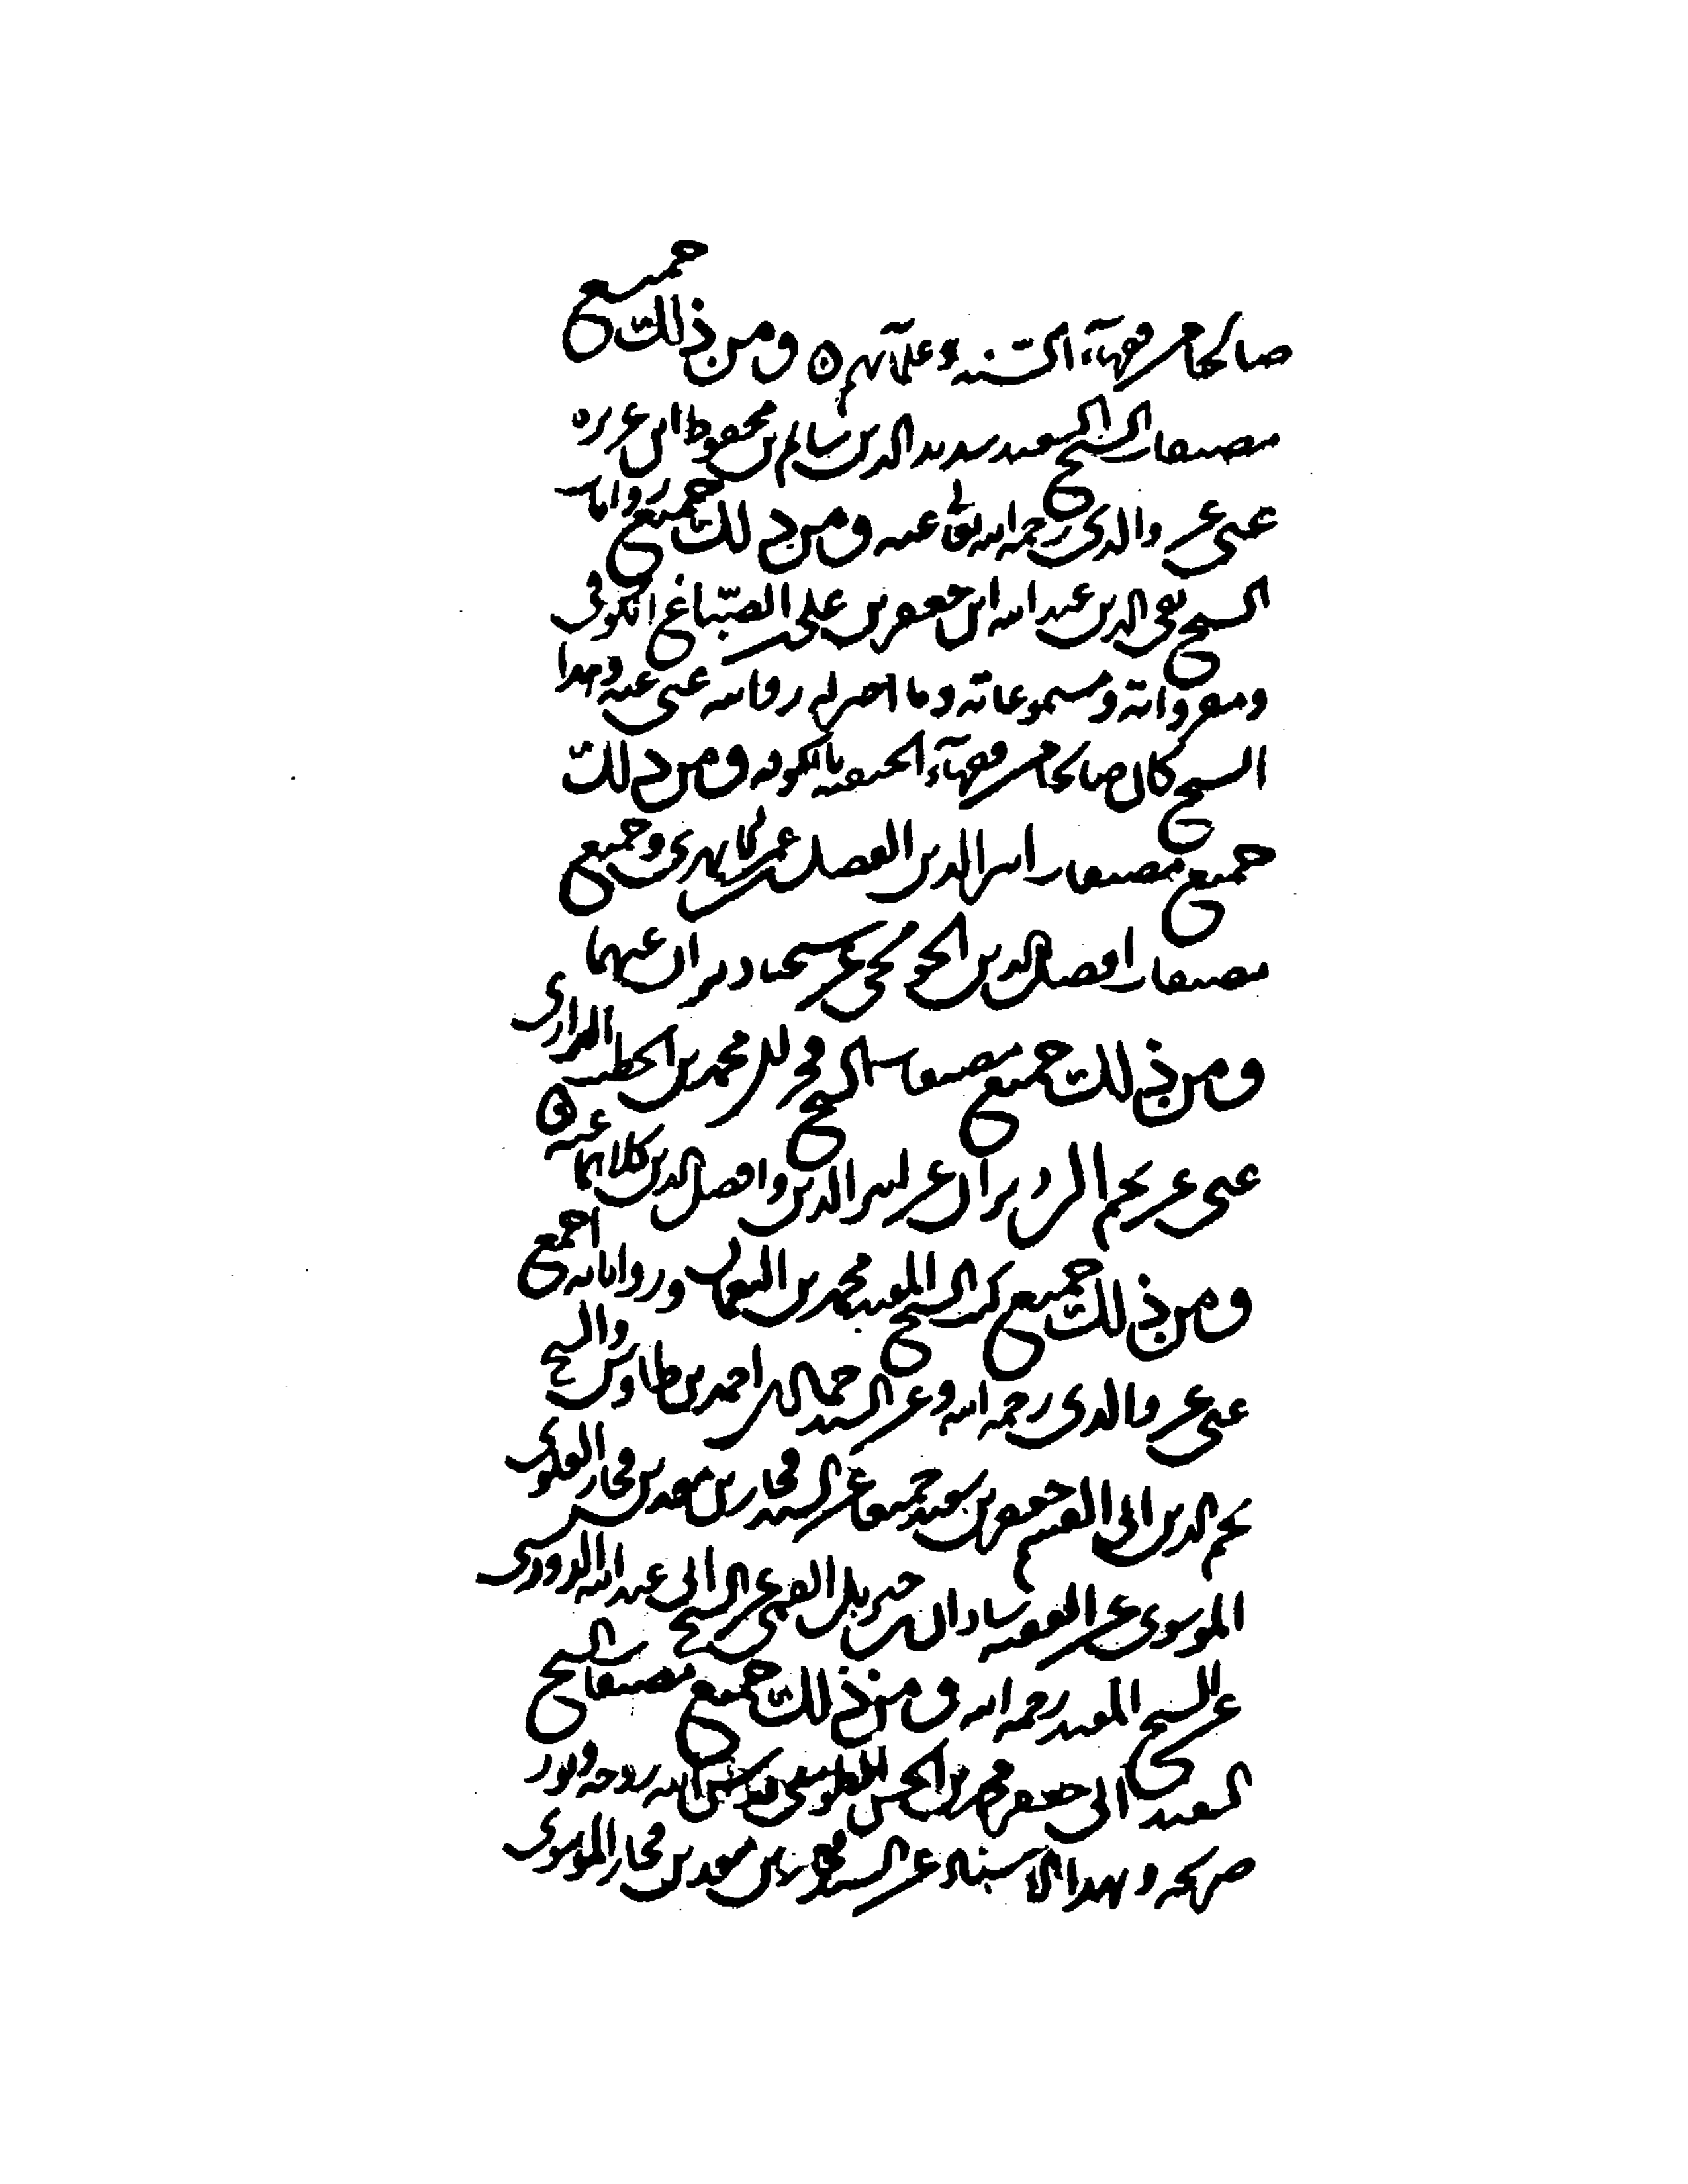 صالحا من فقهآء السنه وعلمآئهم ٥ ومن ذلك جميع
مصنفات الشيخ السعيد سديد الدين سالم بن محفوظ ابن عزيزه
عنى عن والدى رحمه الله تعالى عنه ومن ذلك جميع روايات
الشيخ تقى الدين عبد الله ابن جعفر بن على الصبّاغ الكوفى
ومقرواته ومسموعاته وما اجيز له روايته عنى عنه وهذا
الشيخ كان صالحا من فقهآء الحنفيه بالكوفه ومن ذلك
جميع مصنفات اثير الدين الفضل بن عمر الابهرى وجميع
مصنفات افضل الدين الخونجى عن شيخنا دبيران عنهما
ومن ذلك جميع مصنفات الشيخ فخر الدين محمد بن الخطيب الرازى
عنى عن نجم الدين دبيران عن اثير الدين وافضل الدين كلاهما عنه ٥
ومن ذلك جميع كتب الشيخ المفيد محمد بن النعمان ورواياته اجمع
عنى عن والدى رحمه الله وعن السيد جمال الدين احمد بن طاوس والشيخ
نجم الدين ابى القسم جعفر بن سعيد جميعا عن السيد فخار بن معد بن فخار العلوى
الموسوى عن الفقيه شاذان بن جبريل القمى عن الشيخ ابى عبد الله الدوريستى
عن الشيخ المفيد رحمه الله ومن ذلك جميع مصنفات الشيخ
السعيد ابى جعفر محمد بن الحسن الطوسى قدس الله روحه ونور
ضريحه وبهذا الاسناد عن السيد فخار بن معد بن فخار الموسوى